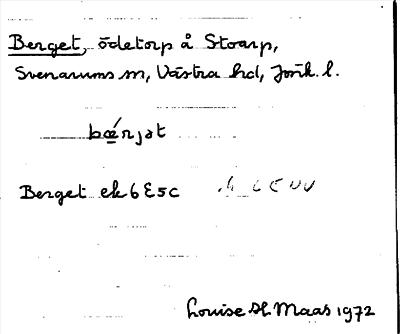 Berget, ödetorp å Stoarp,
Svenarums sn, Västra hd, Jönk. l.
bæ̀rjət
Berget ek 6E5c
Louise H. Maas 1972